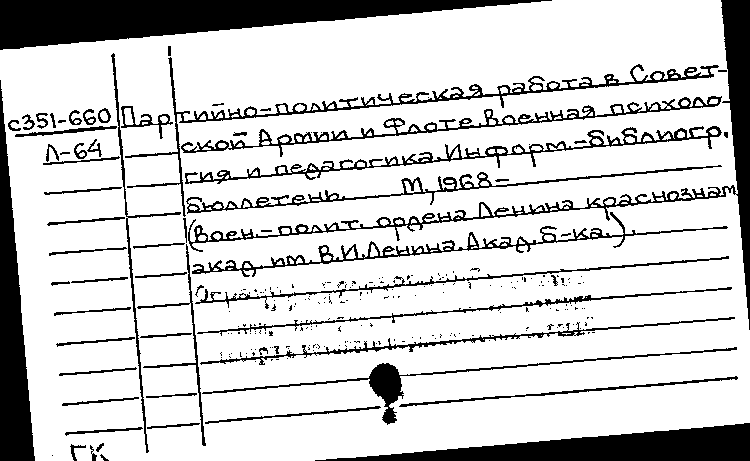 с351-660 Партийно-политическая работа в Совет-
Л-64 ской Армии и Флоте. Военная психоло-
гия и педагогика. Информ.-библиогр.
бюллетень. М., 1968-
(Воен.-полит. ордена Ленина краснознам.
акад. им. В.И.Ленина. Акад. б-ка.).
ГК